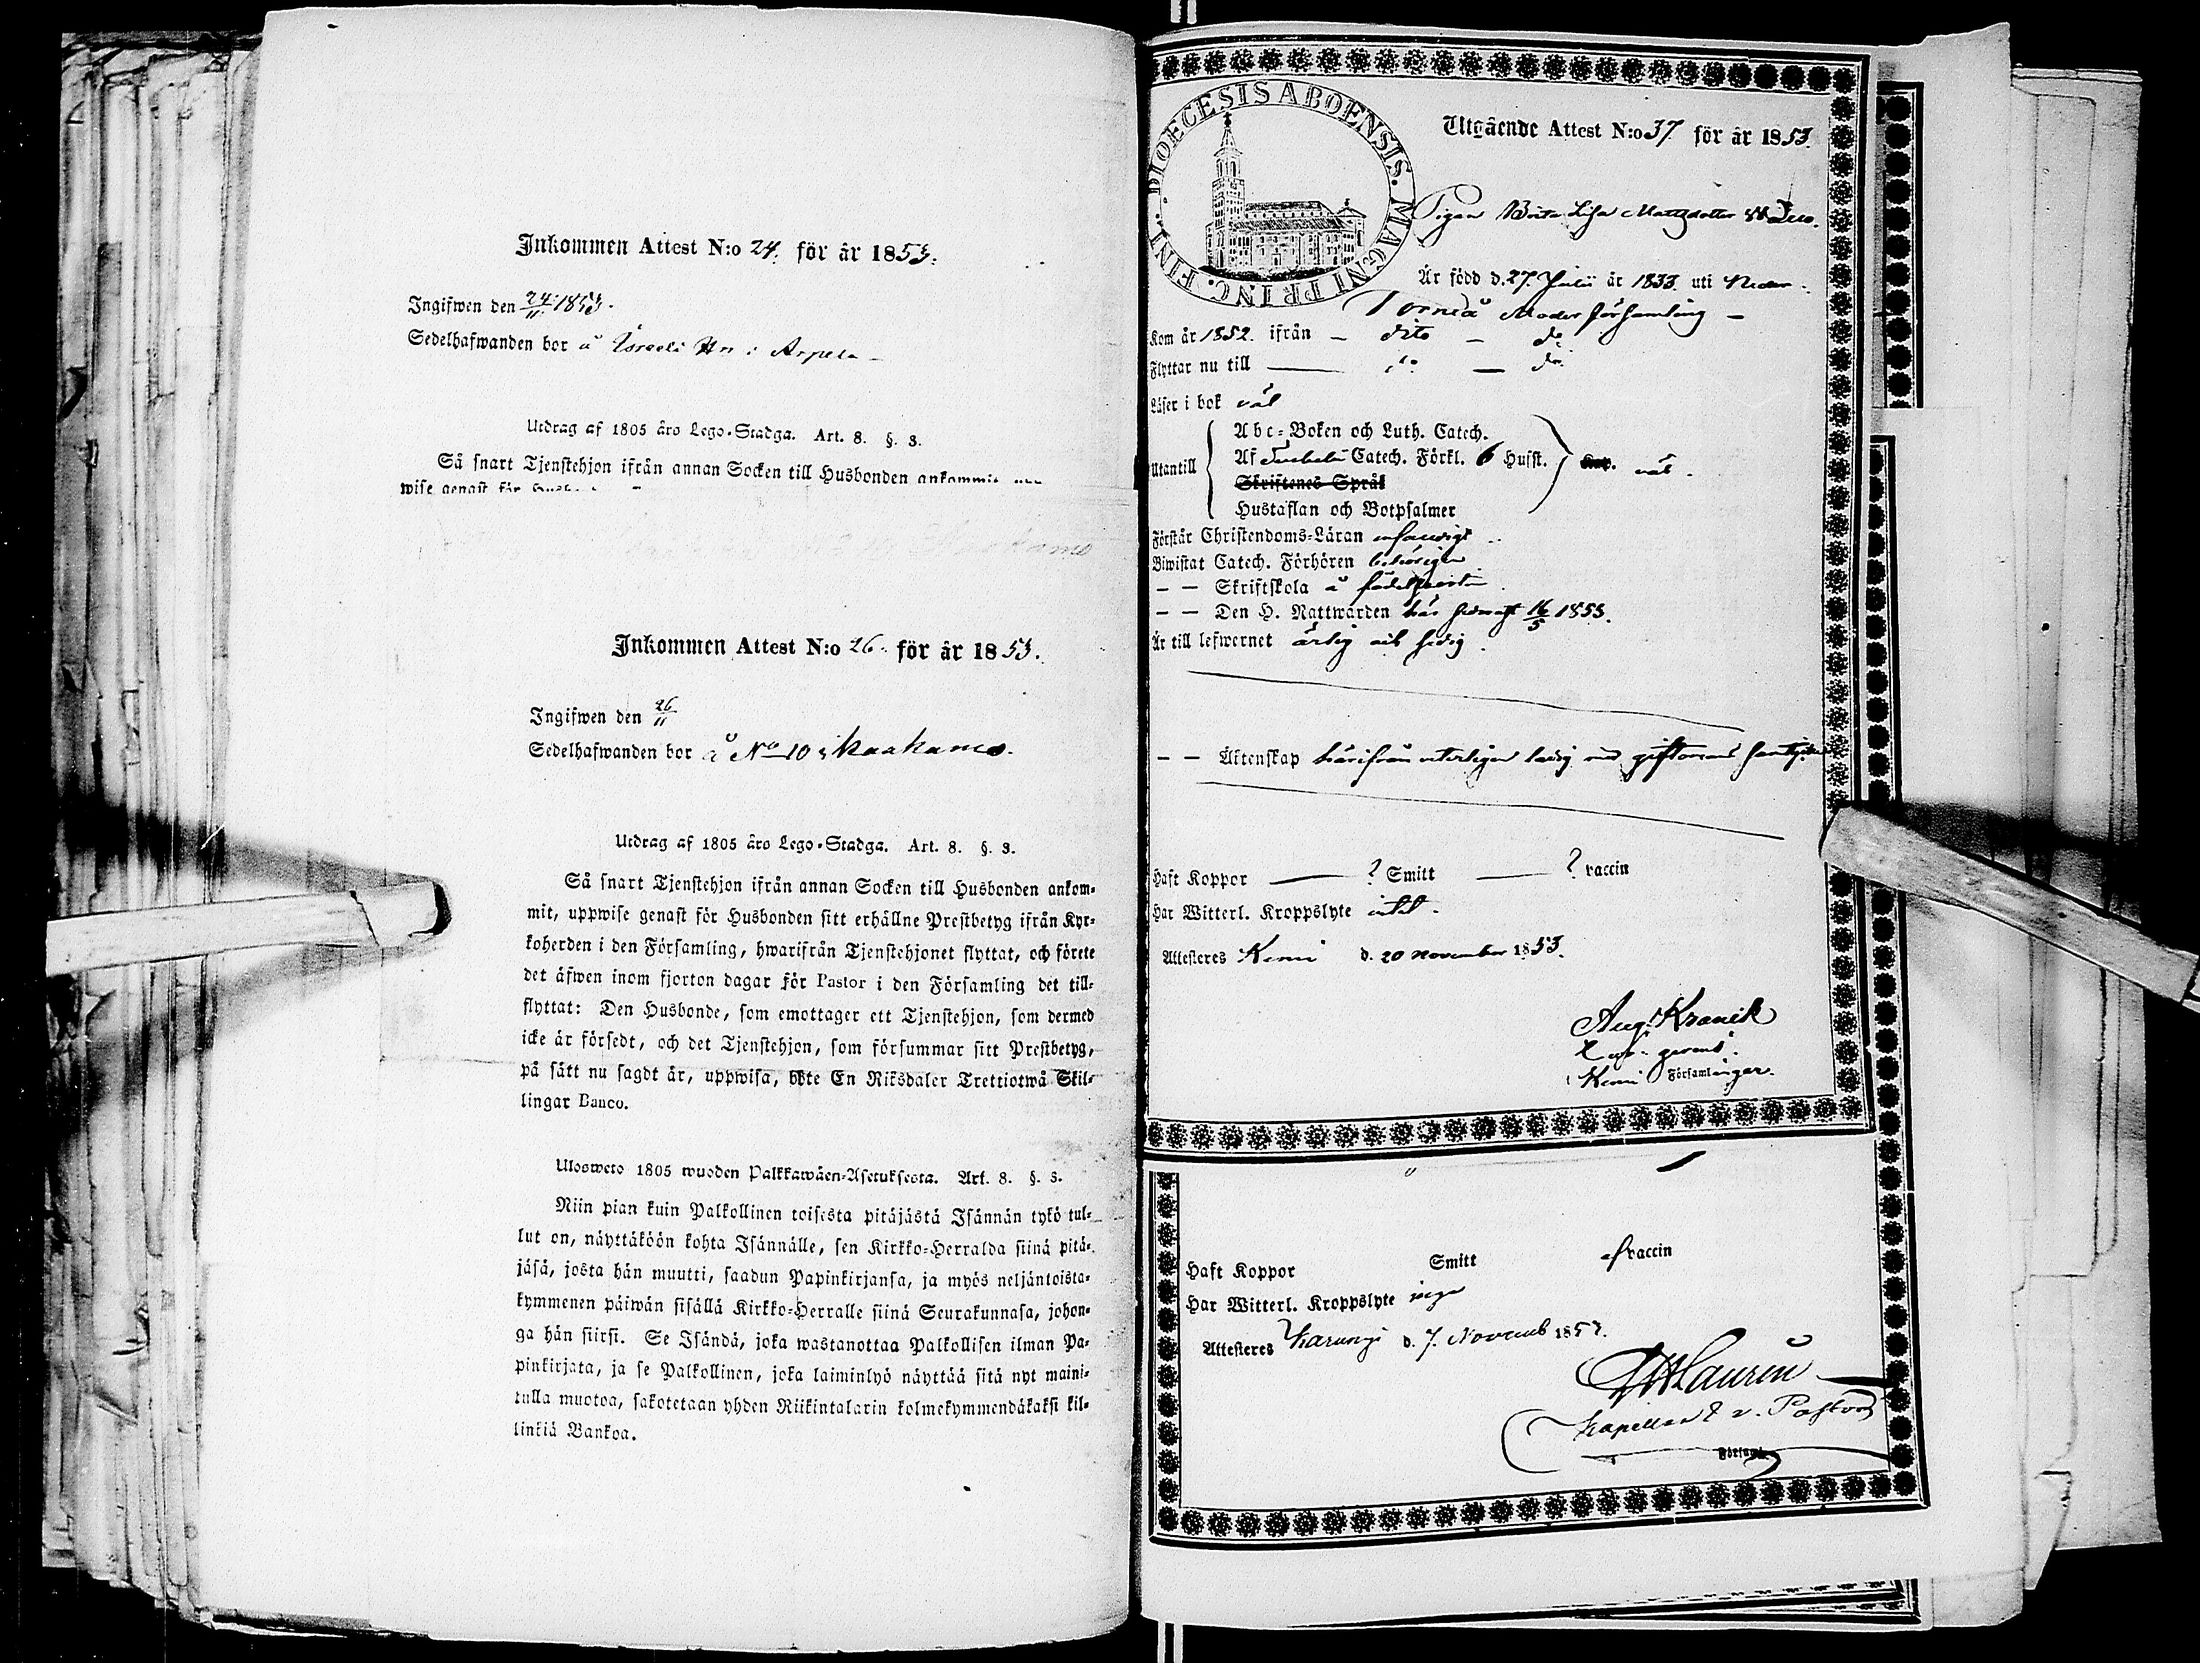 Inkommen Attest N:o 24. för år 1853.
Ingifwen den 24/11 1853.
Sedelhafwanden bor å Israels Hn i Arpela
Utdrag af 1805 års Lego-Stadga. Art. 8. §. 3.
Så snart Tjenstehjon ifrån annan Socken till Husbonden ankommit
wise genast för
Inkommen Attest N:o 26. för år 1853.
Ingifwen den 26/11
Sedelhafwanden bor å No 10 i Kaakamo.
Utdrag af 1805 års Lego-Stadga. Art. 8. §. 3.
Så snart Tjenstehjon ifrån annan Socken till Husbonden ankom-
mit, uppwise genast för Husbonden sitt erhållne Prestbetyg ifrån Kyr-
koherden i den Församling, hwarifrån Tjenstehjonet flyttat, och förete
det äfwen inom fjorton dagar för Pastor i den Församling det till-
flyttat: Den Husbonde, som emottager ett Tjenstehjon, som dermed
icke är försedt, och det Tjenstehjon, som försummar sitt Prestbetyg,
på sätt nu sagdt är, uppwisa, böte En Riksdaler Trettiotwå Skil-
lingar Banco.
Ulosweto 1805 wuoden Palkkawäen-Asetuksesta. Art. 8. §. 3.
Niin pian kuin Palkollinen toisesta pitäjästä Isännän tykö tul-
lut on, näyttäköön kohta Isännälle, sen Kirkko-Herralda siinä pitä-
jäsä, josta hän muutti, saadun Papinkirjansa, ja myös neljäntoista-
kymmenen päiwän sisällä Kirkko-Herralle siinä Seurakunnasa, johon-
ga hän siirsi. Se Isändä, joka wastanottaa Palkollisen ilman Pa-
pinkirjata, ja se Palkollinen, joka laiminlyö näyttää sitä nyt maini-
tulla muotoa, sakotetaan yhden Riikintalarin kolmekymmendäkaksi kil-
linkiä Bankoa.
DIOECESIS ABOENSIS. MAGNI PRINC. FINL.
Utgående Attest N:o 37 för år 1853.
Pigan Brita Lisa Mattsdotter
Är född d. 27. Julii år 1833 uti Neder-
Torneå Moder församling
Kom år 1852. ifrån — dito — do
Flyttar nu till — do — do
Läser i bok väl
Utantill
Abc-Boken och Luth. Catech.
Af Catech. Förkl. 6 Hufst. väl.
Skriftenes Språk
Hustaflan och Botpsalmer
Förstår Christendoms-Läran
Biwistat Catech. Förhören behörigen
— — Skriftskola å födelseorten
— — Den H. Nattwarden här senast 16/5 1853.
Är till lefwernet ärlig och sedig.
— — Äktenskap härifrån veterligen ledig med giftomans samtycke
Haft Koppor — ? Smitt — ? vaccin
Har Witterl. Kroppslyte intet.
Attesteres Kemi d. 20 november 1853.
Aug. Kranck
Kemi Församlingar.
Haft Koppor Smitt vaccin
Har Witterl. Kroppslyte inga
Attesteres Karungi d. 7. Novemb 1853.
Laurin
Kapellan & v. Pastor
Församl.